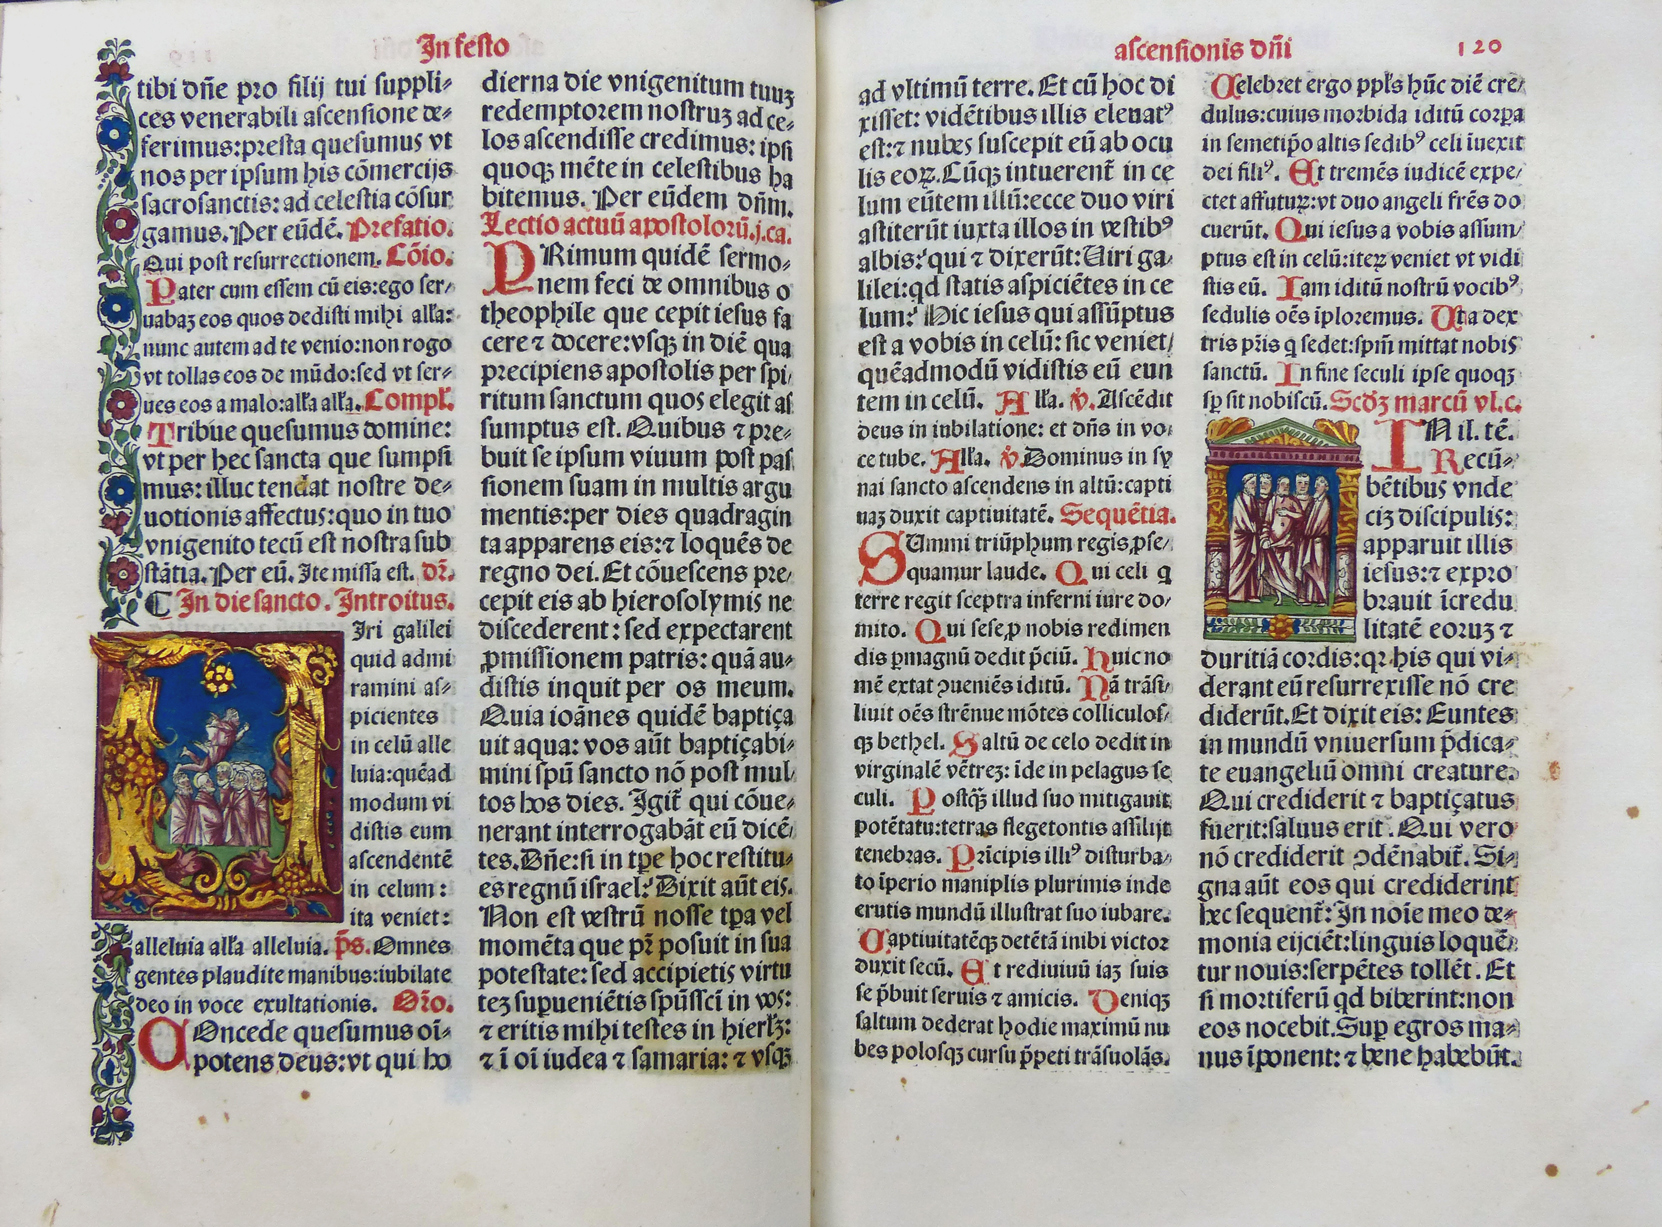 In festo
tibi dñe pro filij tui suppli⸗
ces venerabili ascensione de⸗
ferimus:presta quesumus vt
nos per ipsum his cõmercijs
sacrosanctis: ad celestia cõsur
gamus. Per eũdẽ. Prefatio.
Qui post resurrectionem. Cõio.
Pater cum essem cũ eis:ego ser⸗
uabaʒ eos quos dedisti mihi alła:
nunc autem ad te venio:non rogo
vt tollas eos de mũdo:sed vt ser⸗
ues eos a malo:alła alła. Compł.
Tribue quesumus domine:
vt per hec sancta que sumpsi
mus: illuc tendat nostre de⸗
uotionis affectus:quo in tuo
vnigenito tecũ est nostra sub
stãtia. Per eũ. Ite missa est. or̃.
¶ In die sancto. Introitus.
Iri galilei
quid admi
ramini as⸗
picientes
in celũ alle
luia:quẽad
modum vi
distis eum
ascendentẽ
in celum:
ita veniet:
alleluia alła alleluia. p̃s. Omnes
gentes plaudite manibus:iubilate
deo in voce exultationis. Or̃o.
COncede quesumus oĩ⸗
potens deus:vt qui ho
dierna die vnigenitum tuuʒ
redemptorem nostruʒ ad ce⸗
los ascendisse credimus: ipsi
quoqʒ mẽte in celestibus ha
bitemus. Per eũdem dñm.
Lectio actuũ apostolorũ.j.ca.
PRimum quidẽ sermo⸗
nem feci de omnibus o
theophile que cepit iesus fa
cere ⁊ docere:vsqʒ in diẽ qua
precipiens apostolis per spi⸗
ritum sanctum quos elegit as
sumptus est. Quibus ⁊ pre⸗
buit se ipsum viuum post pas
sionem suam in multis argu
mentis:per dies quadragin
ta apparens eis:⁊ loquẽs de
regno dei. Et cõuescens pre⸗
cepit eis ab hierosolymis ne
discederent: sed expectarent
ꝓmissionem patris: quã au⸗
distis inquit per os meum.
Quia ioãnes quidẽ baptiça
uit aqua: vos aũt baptiçabi⸗
mini spũ sancto nõ post mul⸗
tos hos dies. Igit̃ qui cõue⸗
nerant interrogabãt eũ dicẽ⸗
tes. Dñe:si in tꝑe hoc restitu⸗
es regnũ israel: Dixit aũt eis.
Non est vestrũ nosse tꝑa vel
momẽta que pr̃ posuit in sua
potestate: sed accipietis virtu
teʒ supueniẽtis spũssci in vos:
⁊ eritis mihi testes in hierłʒ:
⁊ ĩ oĩ iudea ⁊ samaria: ⁊ vsqʒ
ascensionis dñi
120
ad vltimũ terre. Et cũ hoc di
xisset: vidẽtibus illis eleuatꝰ
est:⁊ nubes suscepit eũ ab ocu
lis eoꝝ. Cũqʒ intuerent̃ in ce
lum eũtem illũ:ecce duo viri
astiterũt iuxta illos in vestibꝰ
albis: qui ⁊ dixerũt: Uiri ga⸗
lilei:qd statis aspiciẽtes in ce
lum: Hic iesus qui assũptus
est a vobis in celũ: sic veniet⸗
quẽadmodũ vidistis eũ eun
tem in celũ. Alła. ℣. Ascẽdit
deus in iubilatione: et dñs in vo⸗
ce tube. Alła. ℣. Dominus in sy
nai sancto ascendens in altũ:capti
uaʒ duxit captiuitatẽ. Sequẽtia.
SUmmi triũphum regis ꝓse⸗
quamur laude. Qui celi q
terre regit sceptra inferni iure do⸗
mito. Qui sese ꝓ nobis redimen
dis ꝑmagnũ dedit p̃ciũ. Huic no
mẽ extat ꝯueniẽs iditũ. Nã trãsi⸗
liuit oẽs strẽnue mõtes colliculos⸗
qʒ bethel. Saltũ de celo dedit in
virginalẽ vẽtreʒ: ĩde in pelagus se
culi. Postq̃ʒ illud suo mitigauit
potẽtatu:tetras flegetontis assilijt
tenebras. Prĩcipis illiꝰ disturba⸗
to ĩperio maniplis plurimis inde
erutis mundũ illustrat suo iubare.
Captiuitatẽqʒ detẽtã inibi victor
duxit secũ. Et rediuiuũ iaʒ suis
se p̃buit seruis ⁊ amicis. Deniqʒ
saltum dederat hodie maximũ nu
bes polosqʒ cursu p̃peti trãsuolãs.
Celebret ergo ppłs hũc diẽ cre⸗
dulus:cuius morbida iditũ corꝑa
in semetip̃o altis sedibꝰ celi ĩuexit
dei filiꝰ. Et tremẽs iudicẽ expe⸗
ctet affuturꝝ:vt duo angeli fr̃es do
cuerũt. Qui iesus a vobis assum⸗
ptus est in celũ:iteꝝ veniet vt vidi
stis eũ. Iam iditũ nostrũ vocibꝰ
sedulis oẽs ĩploremus. Uta dex
tris pr̃is q sedet:spm̃ mittat nobis
sanctũ. In fine seculi ipse quoqʒ
sp sit nobiscũ. Scďʒ marcũ vl.c.
IN il. tẽ.
Recũ⸗
bẽtibus vnde
ciʒ discipulis:
apparuit illis
iesus:⁊ expro
brauit ĩcredu
litatẽ eoruʒ ⁊
duritiã cordis:qꝛ his qui vi⸗
derant eũ resurrexisse nõ cre
diderũt. Et dixit eis: Euntes
in mundũ vniuersum p̃dica⸗
te euangeliũ omni creature.
Qui crediderit ⁊ baptiçatus
fuerit:saluus erit. Qui vero
nõ crediderit ꝯdẽnabit̃. Si⸗
gna aũt eos qui crediderint
hec sequent̃: In noĩe meo de⸗
monia eijciẽt:linguis loquẽ⸗
tur nouis:serpẽtes tollẽt. Et
si mortiferũ qd biberint:non
eos nocebit. Sup egros ma⸗
nus ĩponent: ⁊ bene habebũt.